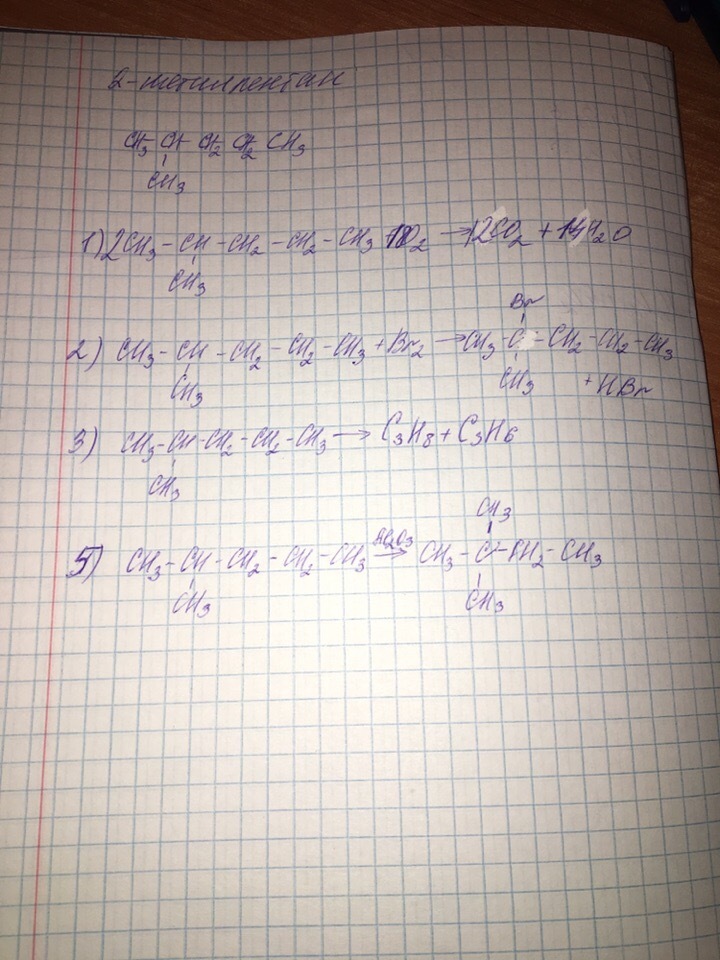 2-метилпентан
CH3 CH CH2 CH2 CH3
CH3
1) 2CH3 - CH - CH2 - CH2 - CH3 O2 → 12CO2 + 14H2O
CH3
Br
2) CH3 - CH - CH2 - CH2 - CH3 + Br2 → CH3 C - CH2 - CH2 - CH3
CH3 CH3 + HBr
3) CH3 - CH - CH2 - CH2 - CH3 → C3H8 + C3H6
CH3
CH3
5) CH3 - CH - CH2 - CH2 - CH3 → CH3 - C - CH2 - CH3
CH3 CH3